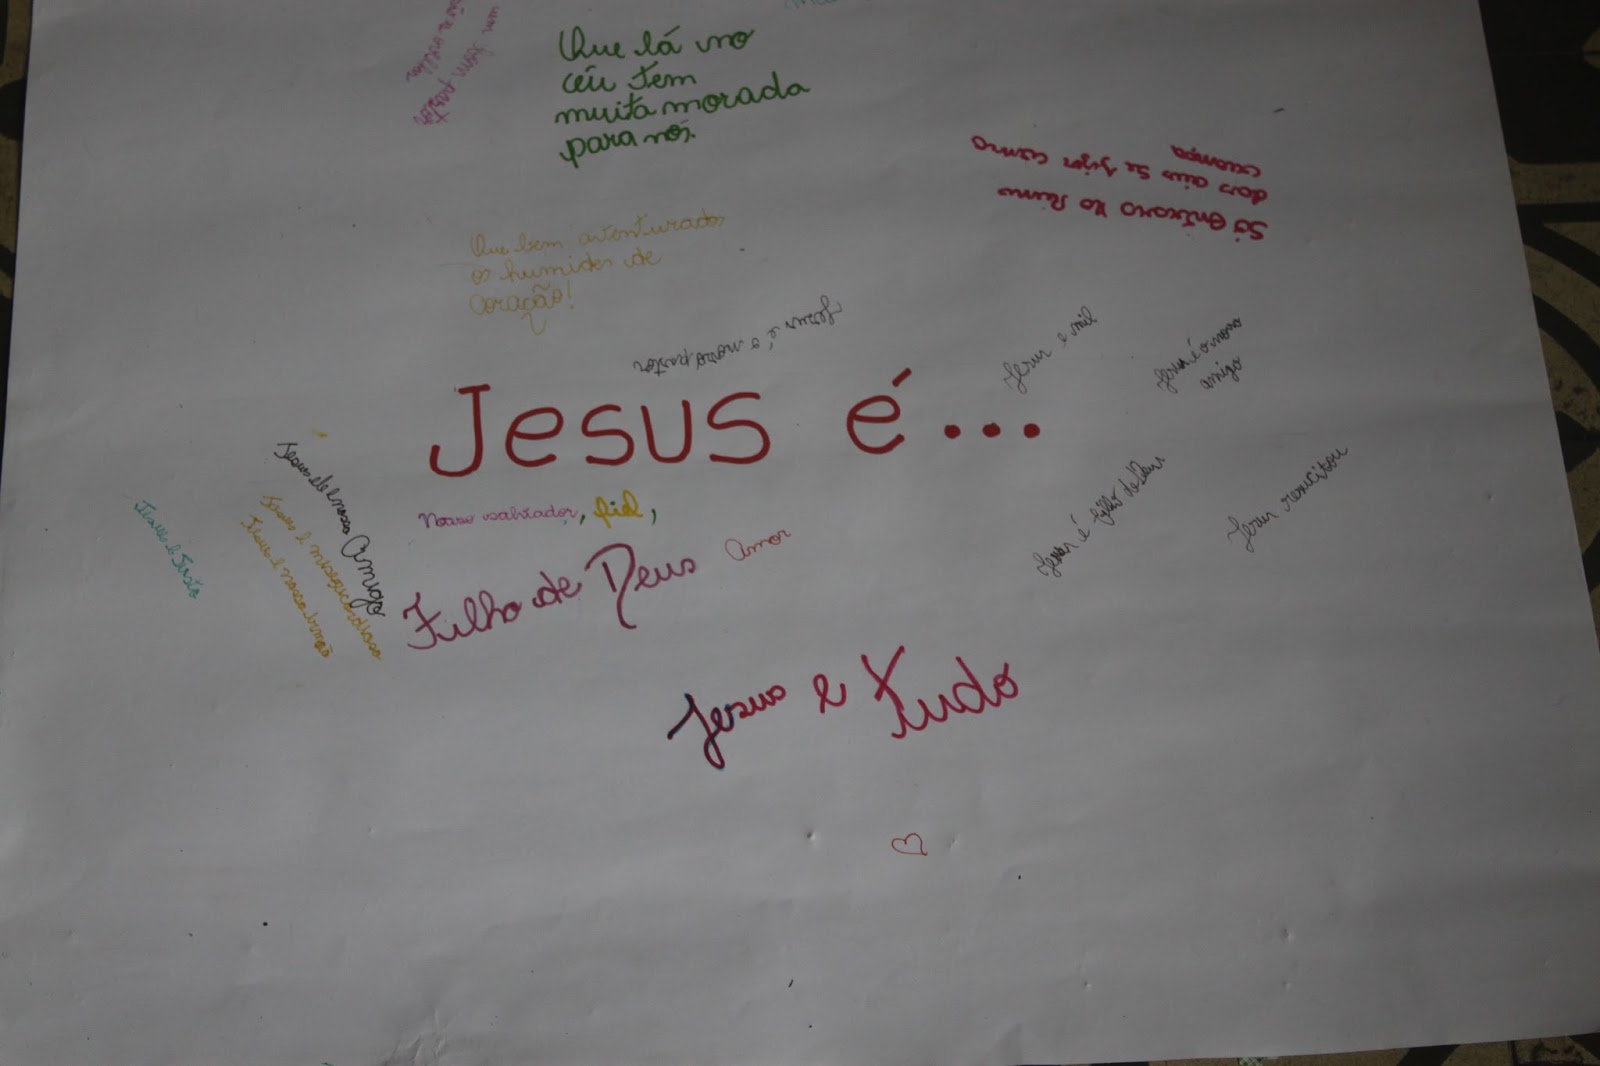 Que lá no
céu tem
muita morada
para nós.
um bom pastor
Só entrara no Reino
dos céus se for como
criança
Que bem aventurados
os humides de
coração!
Jesus é, o nosso pastor
Jesus e mil
Jesus é o nosso
amigo
Jesus é...
Nosso salvador, fiel,
Filho de Deus Amor
Jesus é filho de Deus
Jesus resucitou
Jesus e nosso Amigo
Jesus e misericordioso
Jesus e nosso irmão
Jesus e Justo
Jesus e Tudo